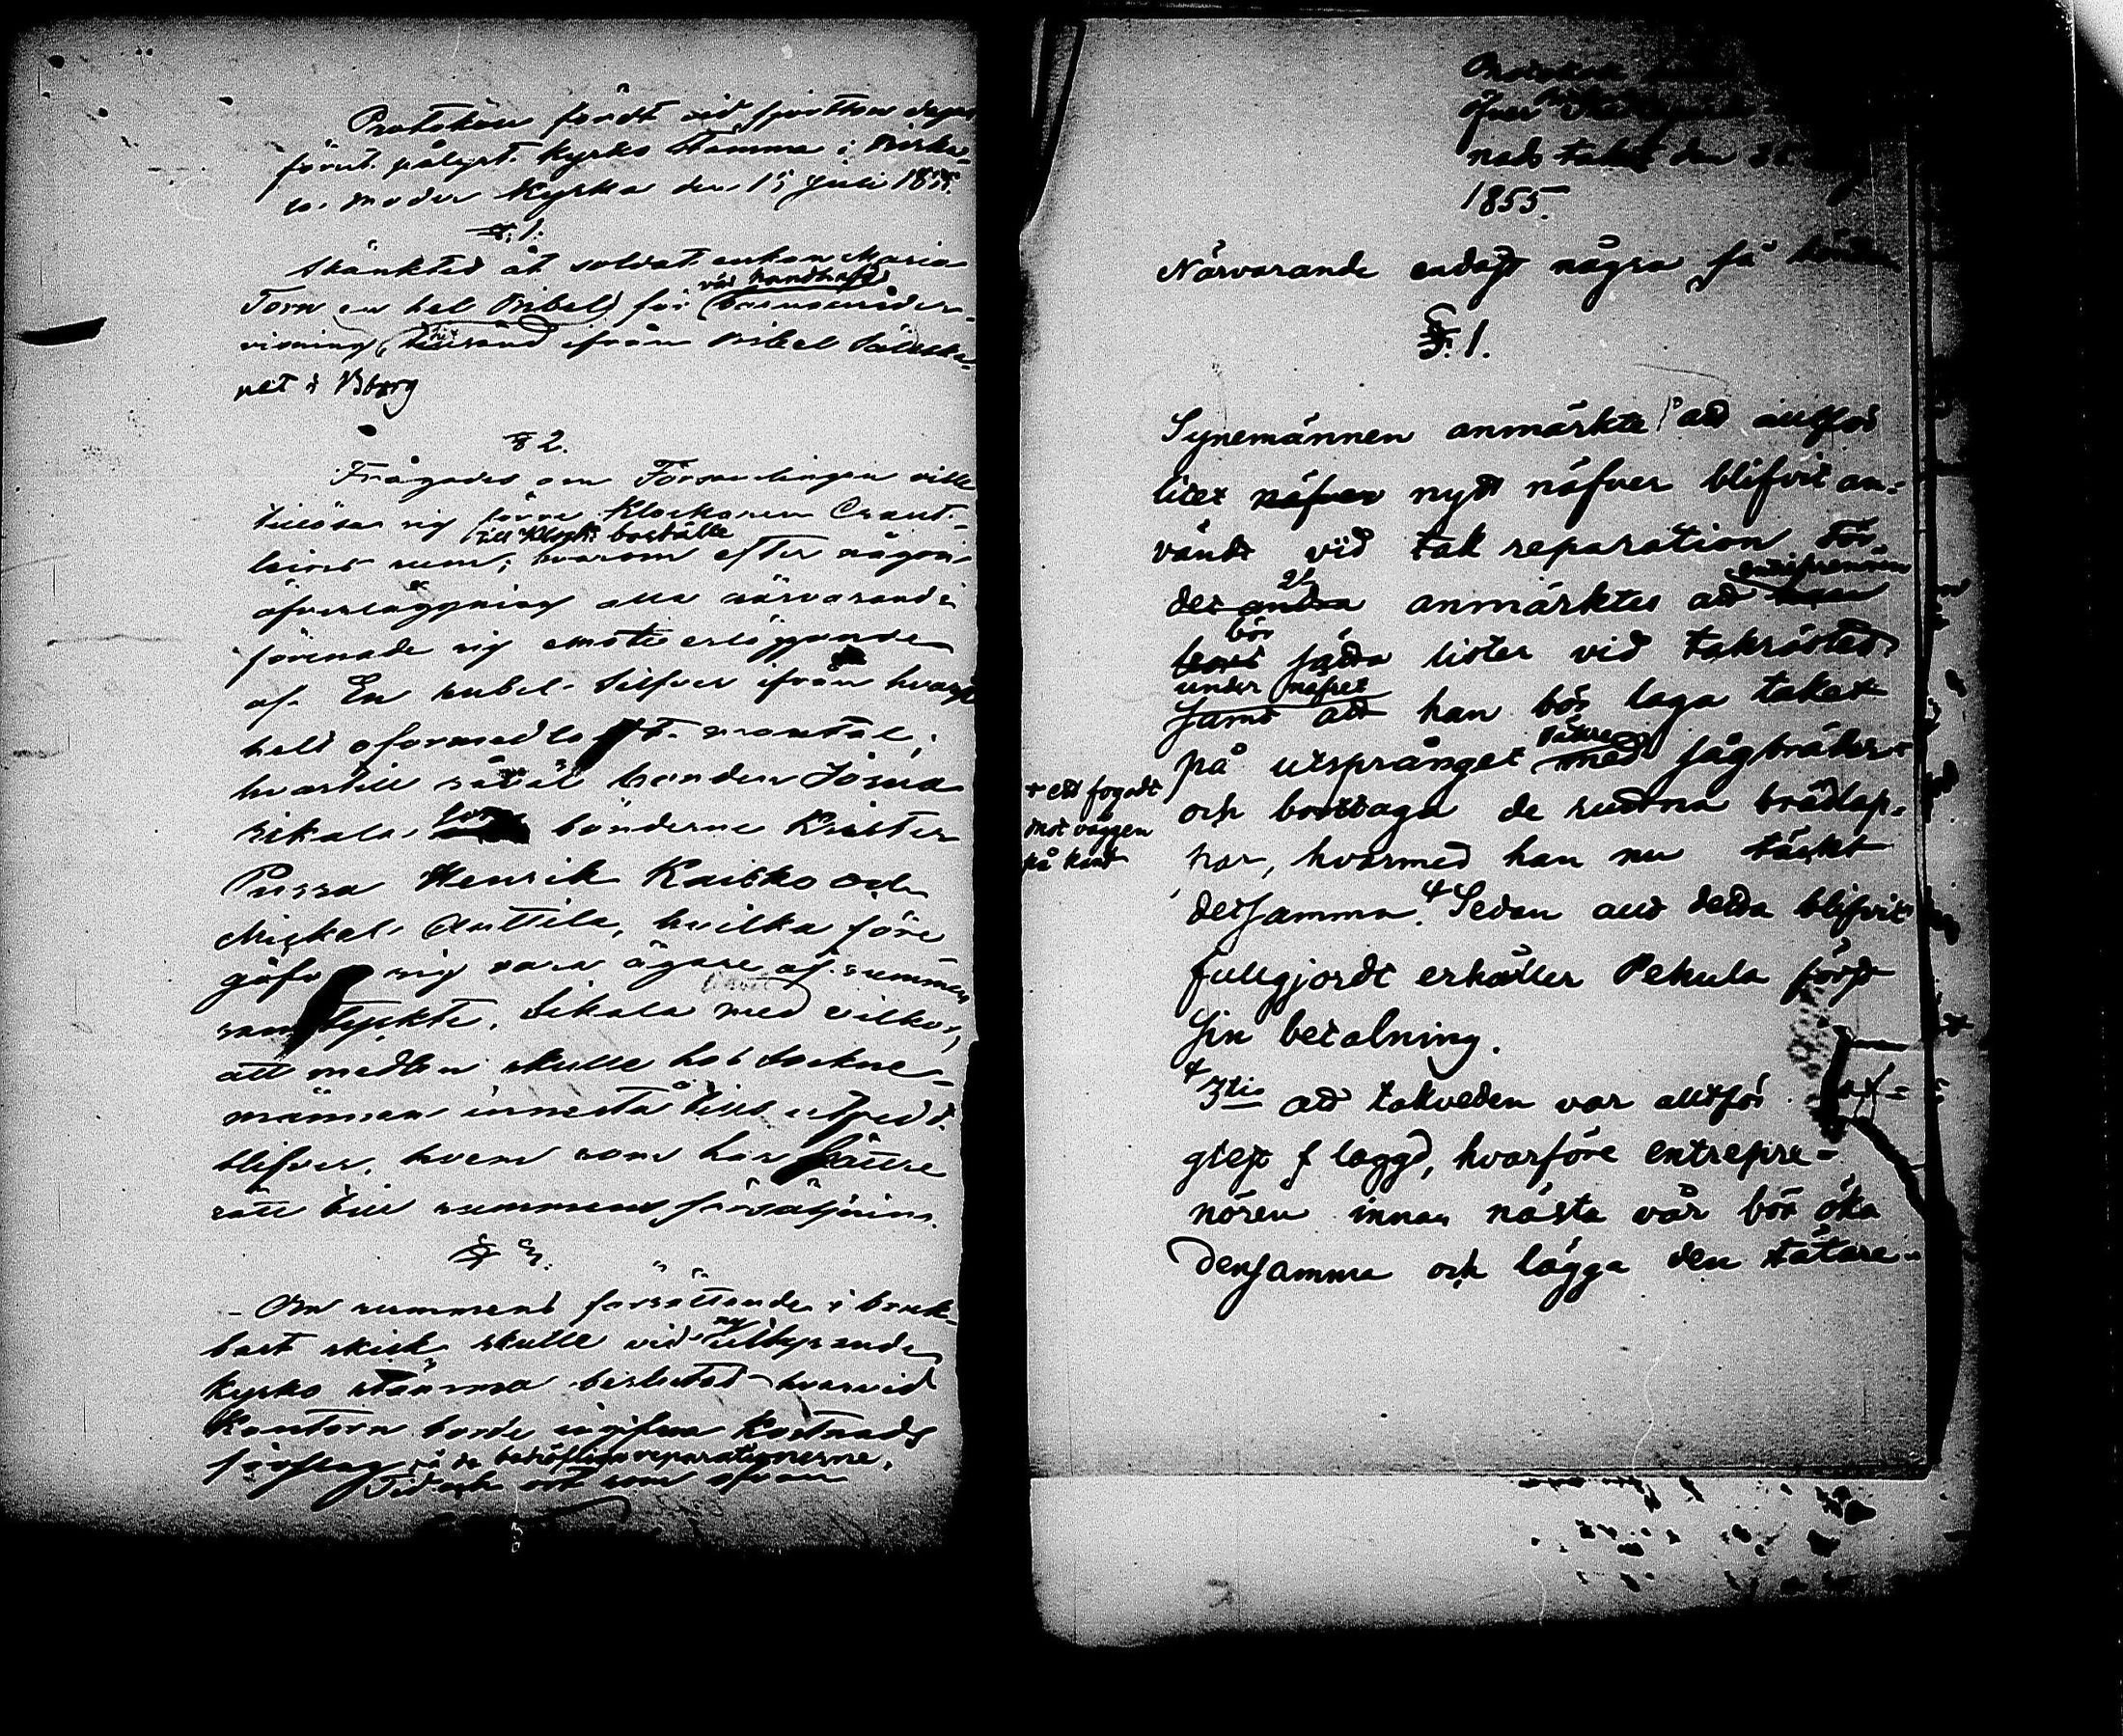 Protokoll fördt vid fjortton dagar
förut pålyst Kyrko Stämma i Birka-
la moder Kyrka den 15 Juli 1855.
§. 1.
Skänktes åt soldat enkan Maria
Torn en hel Bibel för väl handhafd barnaunder-
visning, hit sänd ifrån Bibel Sällska-
pet i Åborg
§ 2.
Frågades om Församlingen ville
tillösa sig förra Klockaren
rum, till Klock. boställe hvarom efter någon
öfverläggning alla närvarande
förenade sig emot erläggande
af En rubel Silfver ifrån hvarje
helt oförmedladt mantal;
hvartill såväl bonden Josua
Sikala, som bönderne Krister
Pussa Henrik Kaitko och
Michel Anttila, hvilka före
gåfvo sig vara ägare af rummen
samtyckte. Sikala med vilkor,
att medlen skulle hos Sockne-
männen innestå till utredt
blifver, hvem som har bättre
rätt till rummens försäljning.
§ 3.
- Om rummens försättande i bruk-
bart skick skulle vid ny utlysande
Kyrko stämma beslutas hvarvid
Kantorn borde ingifva Kostnads
förslag på de behöfliga reparationerne.
Tid och ort som ofvan
öfver
nads taket den
1855.
Närvarande endast några få bönder
§. 1.
Synemännen anmärkte 1° att alltför
litet näfver nytt näfver blifvit an-
vändt vid tak reparation För
det andra 2° anmärktes att entreprenören
bör sätta lister vid takröstet
under näfret samt att han bör laga taket
på utsprånget med bättre sågbräder +
+ ett fogadt
mot väggen
på kant
och borttaga de ruttna brädlap-
par, hvarmed han nu täckt
detsamma. ⁴ Sedan allt detta blifvit
fullgjordt erhåller Pekula först
sin betalning.
⁴ 3tio att takveden var alltför
glest laggd, hvarföre entrepre-
nören innan nästa vår bör öka
densamma och lägga den tätare.